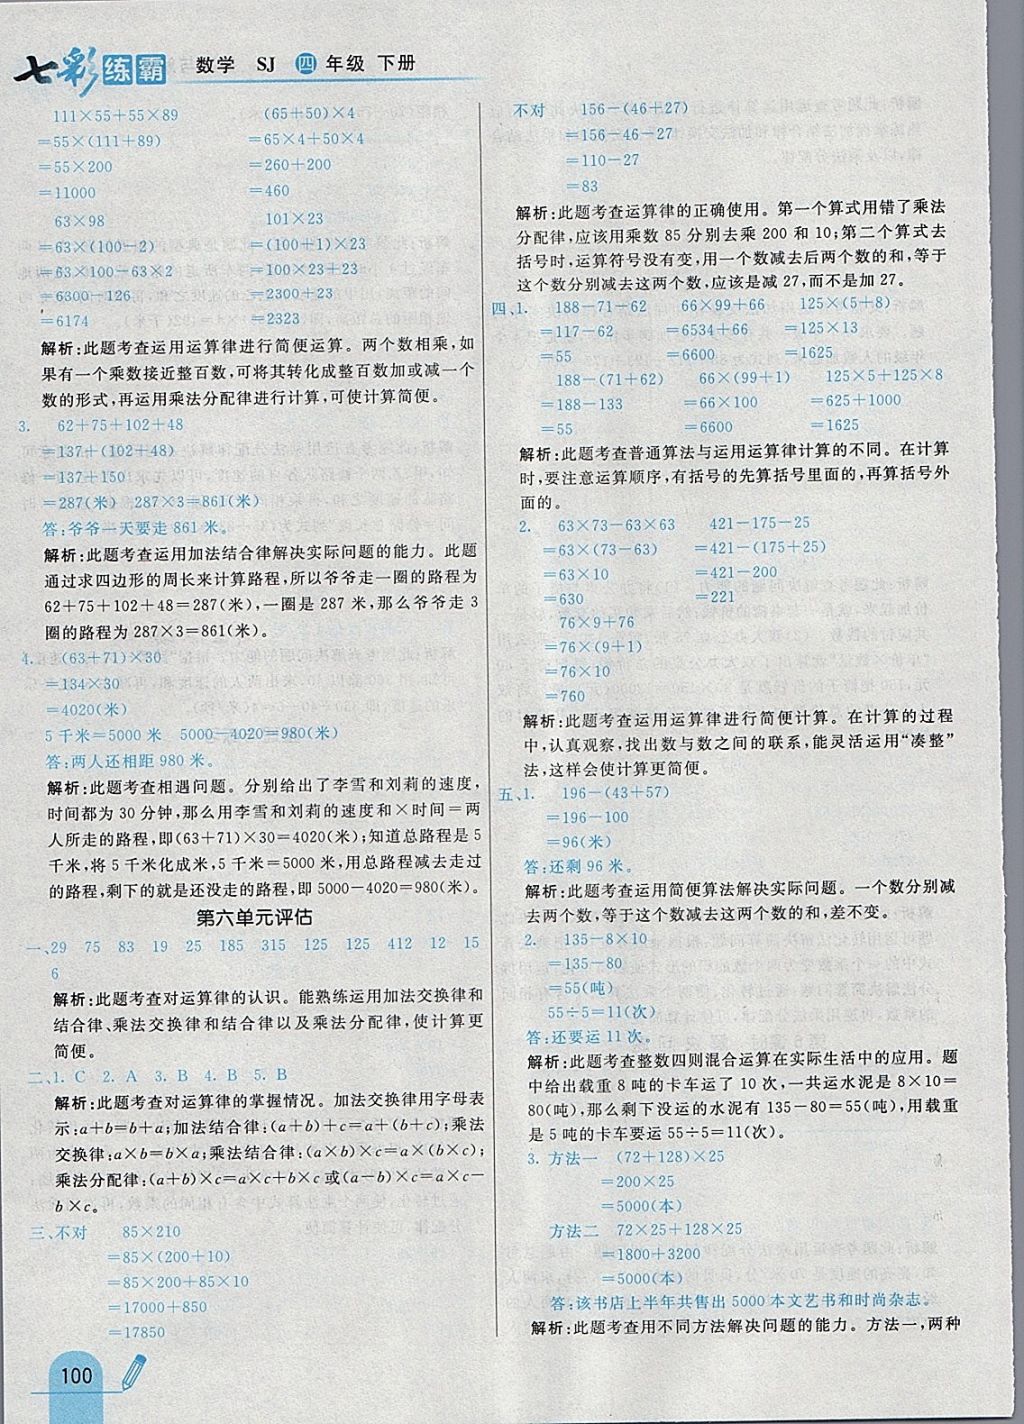 七彩练霸 数学 SJ 四年级 下册
111×55+55×89 (65+50)×4
=55×(111+89) =65×4+50×4
=55×200 =260+200
=11000 =460
63×98 101×23
=63×(100-2) =(100+1)×23
=63×100-63×2 =100×23+23
=6300-126 =2300+23
=6174 =2323
解析:此题考查运用运算律进行简便运算。两个数相乘,如
果有一个乘数接近整百数,可将其转化成整百数加或减一个
数的形式,再运用乘法分配律进行计算,可使计算简便。
3. 62+75+102+48
=137+(102+48)
=137+150
=287(米) 287×3=861(米)
答:爷爷一天要走 861 米。
解析:此题考查运用加法结合律解决实际问题的能力。此题
通过求四边形的周长来计算路程,所以爷爷走一圈的路程为
62+75+102+48=287(米),一圈是 287 米,那么爷爷走 3
圈的路程为 287×3=861(米)。
4. (63+71)×30
=134×30
=4020(米)
5 千米=5000 米 5000-4020=980(米)
答:两人还相距 980 米。
解析:此题考查相遇问题。分别给出了李雪和刘莉的速度,
时间都为 30 分钟,那么用李雪和刘莉的速度和×时间=两
人所走的路程,即(63+71)×30=4020(米);知道总路程是 5
千米,将 5 千米化成米,5 千米=5000 米,用总路程减去走过
的路程,剩下的就是还没走的路程,即 5000-4020=980(米)。
第六单元评估
一、29 75 83 19 25 185 315 125 125 412 12 15
6
解析:此题考查对运算律的认识。能熟练运用加法交换律和
结合律、乘法交换律和结合律以及乘法分配律,使计算更
简便。
二、1. C 2. A 3. B 4. B 5. B
解析:此题考查对运算律的掌握情况。加法交换律用字母表
示:a+b=b+a;加法结合律:(a+b)+c=a+(b+c);乘法
交换律:a×b=b×a;乘法结合律:(a×b)×c=a×(b×c);
乘法分配律:(a+b)×c=a×c+b×c或(a-b)×c=a×c-
b×c。
三、不对 85×210
=85×(200+10)
=85×200+85×10
=17000+850
=17850
不对 156-(46+27)
=156-46-27
=110-27
=83
解析:此题考查运算律的正确使用。第一个算式用错了乘法
分配律,应该用乘数 85 分别去乘 200 和 10;第二个算式去
括号时,运算符号没有变,用一个数减去后两个数的和,等于
这个数分别减去这两个数,应该是减 27,而不是加 27。
四、1. 188-71-62 66×99+66 125×(5+8)
=117-62 =6534+66 =125×13
=55 =6600 =1625
188-(71+62) 66×(99+1) 125×5+125×8
=188-133 =66×100 =625+1000
=55 =6600 =1625
解析:此题考查普通算法与运用运算律计算的不同。在计算
时,要注意运算顺序,有括号的先算括号里面的,再算括号外
面的。
2. 63×73-63×63 421-175-25
=63×(73-63) =421-(175+25)
=63×10 =421-200
=630 =221
76×9+76
=76×(9+1)
=76×10
=760
解析:此题考查运用运算律进行简便计算。在计算的过程
中,认真观察,找出数与数之间的联系,能灵活运用“凑整”
法,这样会使计算更简便。
五、1. 196-(43+57)
=196-100
=96(米)
答:还剩 96 米。
解析:此题考查运用简便算法解决实际问题。一个数分别减
去两个数,等于这个数减去这两个数的和,差不变。
2. 135-8×10
=135-80
=55(吨)
55÷5=11(次)
答:还要运 11 次。
解析:此题考查整数四则混合运算在实际生活中的应用。题
中给出载重 8 吨的卡车运了 10 次,一共运水泥是 8×10=
80(吨),那么剩下没运的水泥有 135-80=55(吨),用载重
是 5 吨的卡车要运 55÷5=11(次)。
3. 方法一 (72+128)×25
=200×25
=5000(本)
方法二 72×25+128×25
=1800+3200
=5000(本)
答:该书店上半年共售出 5000 本文艺书和时尚杂志。
解析:此题考查用不同方法解决问题的能力。方法一,两种
100